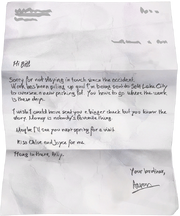 Hi Bill
Sorry for not staying in touch since the accident.
Work has been piling up and I'm being sent to Salt Lake City
to oversee a new parking lot. You have to go where the work
is these days.
I wish I could have sent you a bigger check but you know the
story. Money is nobody's favorite thing.
Maybe I'll see you next spring for a visit.
Kiss Chloe and Joyce for me.
Hang in there, Billy.
Your brother,